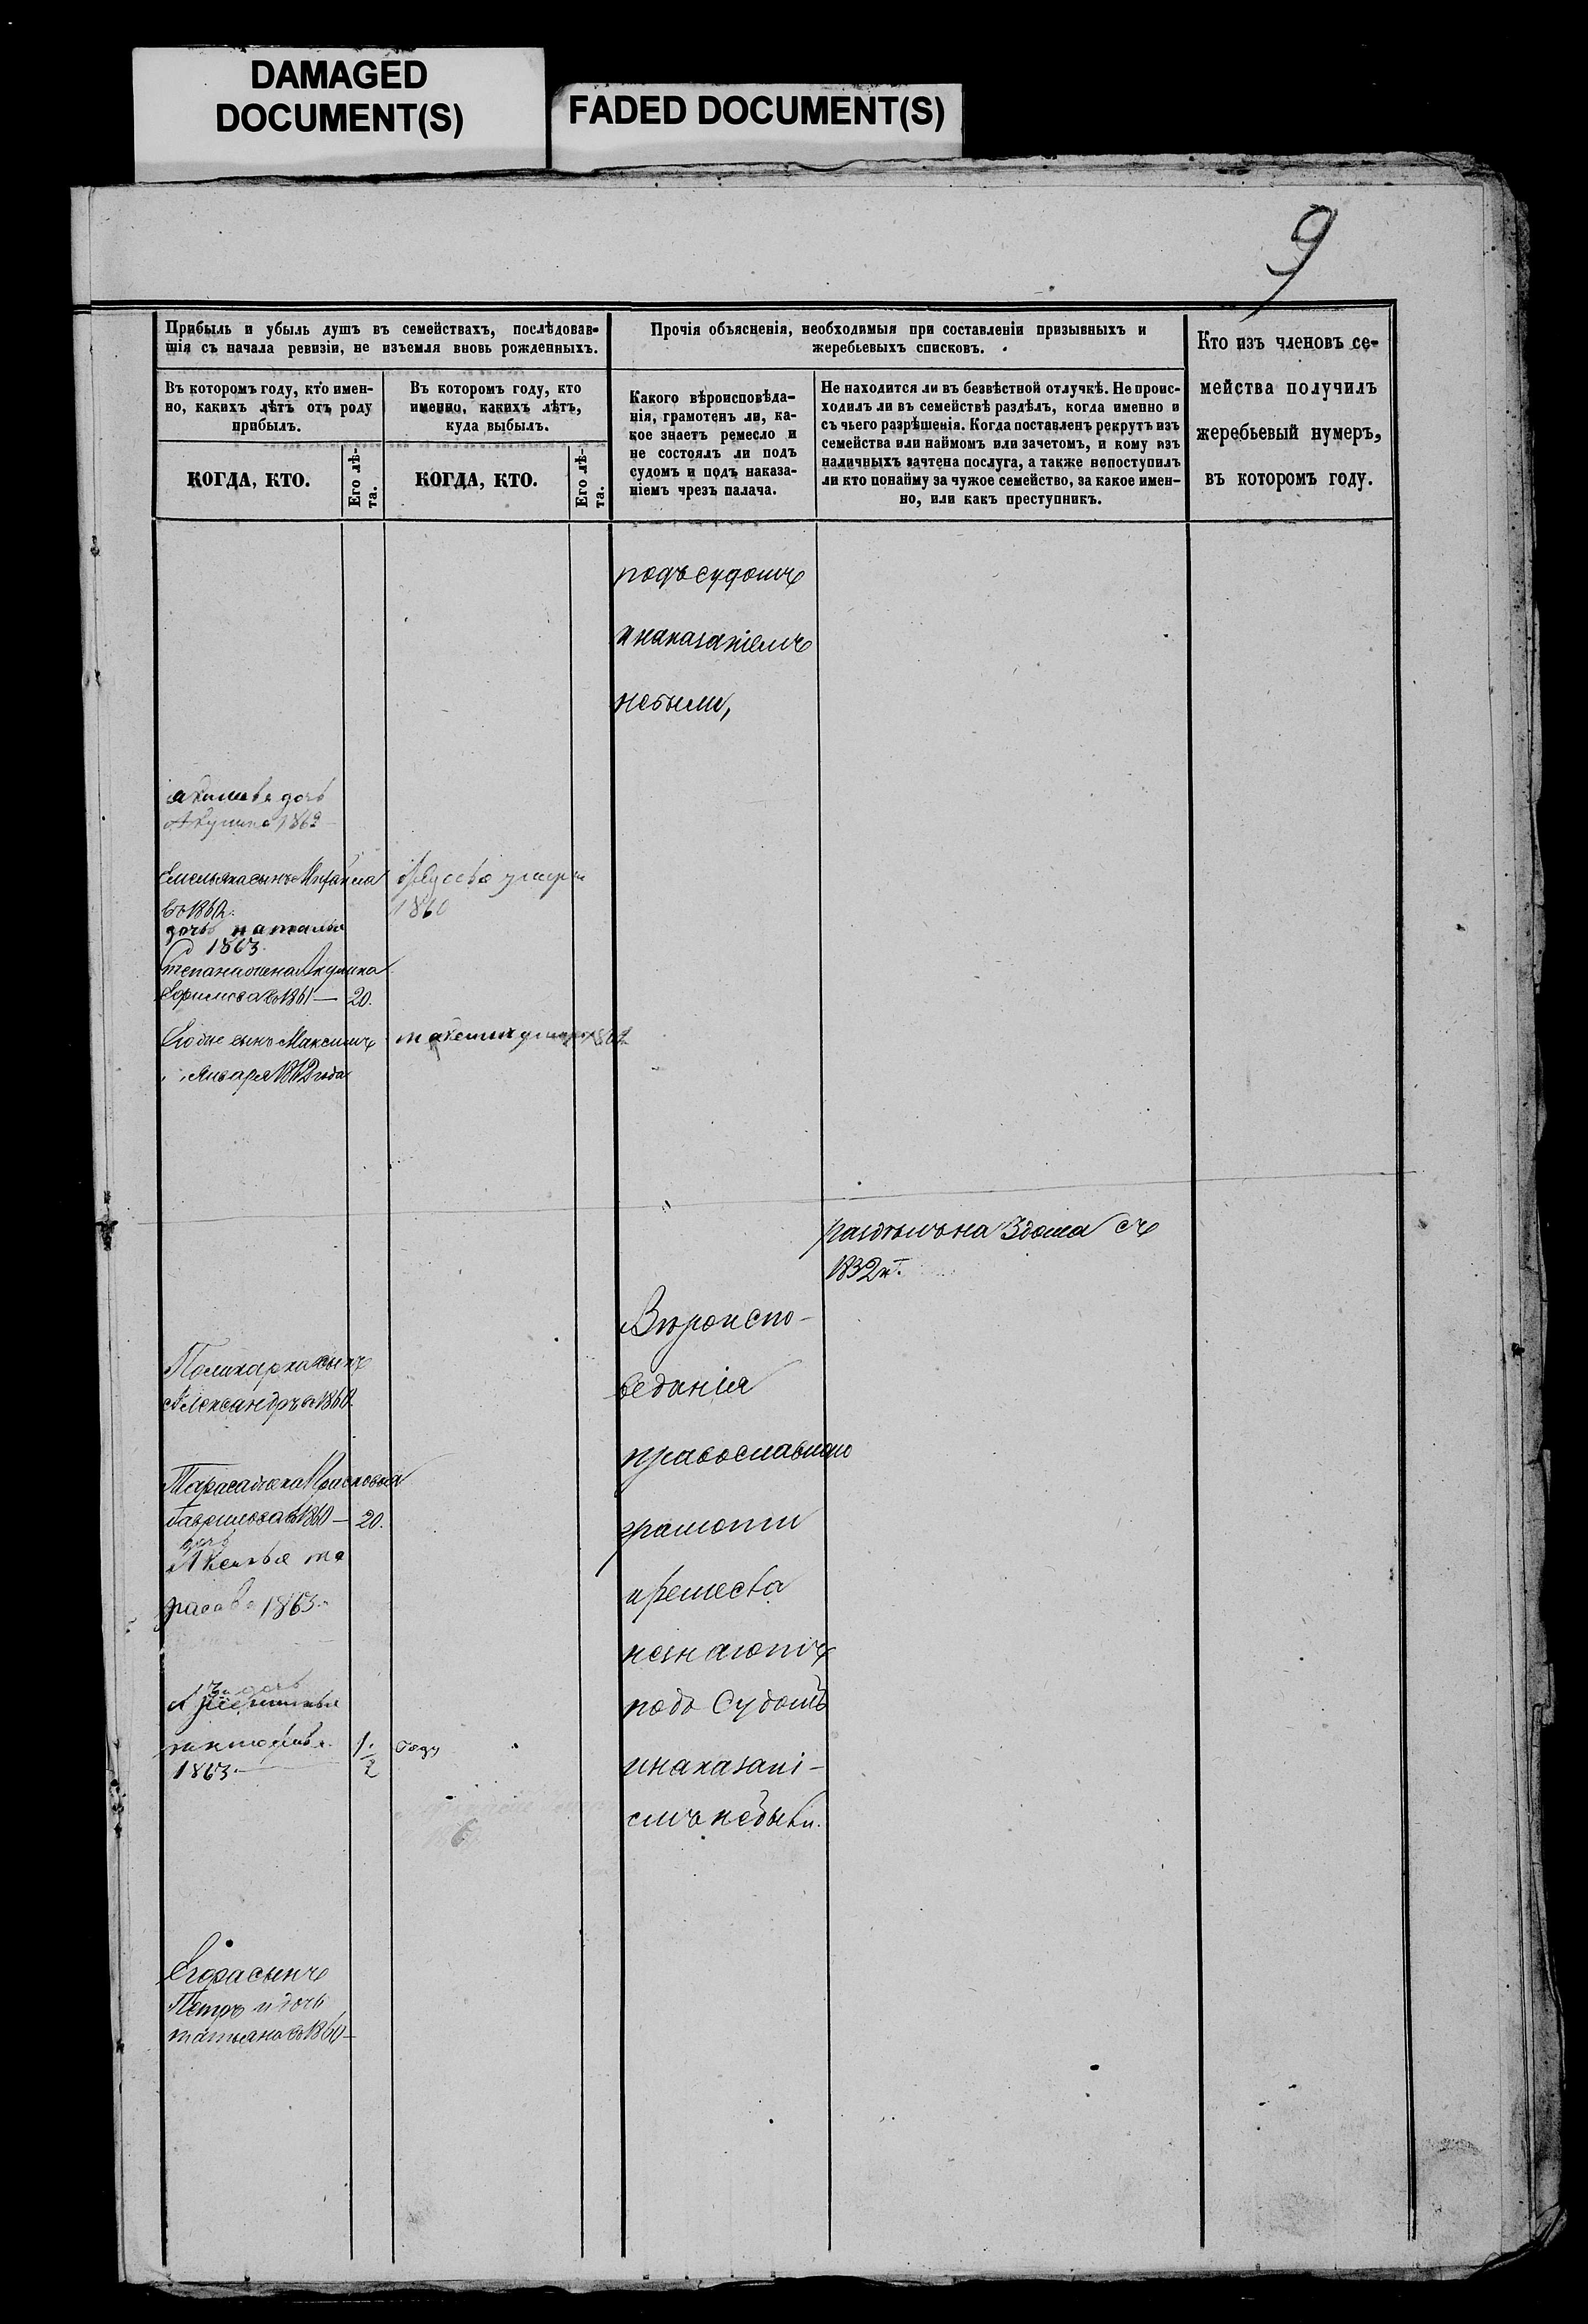 DAMAGED
DOCUMENT(S)
FADED DOCUMENT(S)
9
Прибыль и убыль душъ въ семействахъ, послѣдовав-
шія съ начала ревизіи, не изъемля вновь рожденныхъ.
Въ которомъ году, кто имен-
но, какихъ лѣтъ отъ роду
прибылъ.
Въ которомъ году, кто
именно, какихъ лѣтъ,
куда выбылъ.
КОГДА, КТО.
Его лѣ-
та.
КОГДА, КТО.
Его лѣ-
та.
Прочія объясненія, необходимыя при составленіи призывныхъ и
жеребьевыхъ списковъ.
Какого вѣроисповѣда-
нія, грамотенъ ли, ка-
кое знаетъ ремесло и
не состоялъ ли подъ
судомъ и подъ наказа-
ніемъ чрезъ палача.
Не находится ли въ безвѣстной отлучкѣ. Не проис-
ходилъ ли въ семействѣ раздѣлъ, когда именно и
съ чьего разрѣшенія. Когда поставленъ рекрутъ изъ
семейства или наймомъ или зачетомъ, и кому изъ
наличныхъ зачтена послуга, а также непоступилъ
ли кто понайму за чужое семейство, за какое имен-
но, или какъ преступникъ.
Кто изъ членовъ се-
мейства получилъ
жеребьевый нумеръ,
въ которомъ году.
подъ судомъ
и наказаніемъ
небыли,
дочь
Акулина 1862
Емельяна сынъ Михаила
въ 1860
дочь наталья
1863
умерла
1860
Степана жена Акулина
Ефимова въ 1861 — 20.
сынъ Максимъ
Января 1862 года
максимъ умеръ 1862
на 3 дома съ
1832 г.
Вѣроиспо-
веданія
православнаго
грамоти
иремесва
незнаютъ
подъ Судомъ
инаказані-
емъ небыли.
Поликарпа сынъ
Александръ в 1860
Тараса жена Прасковья
Гаврилова в 1860 — 20.
дочь
Аксинья та
расова 1863
дочь
1863
1/2 году
6
Егора сынъ
Петръ и дочь
татьяна в 1860 —